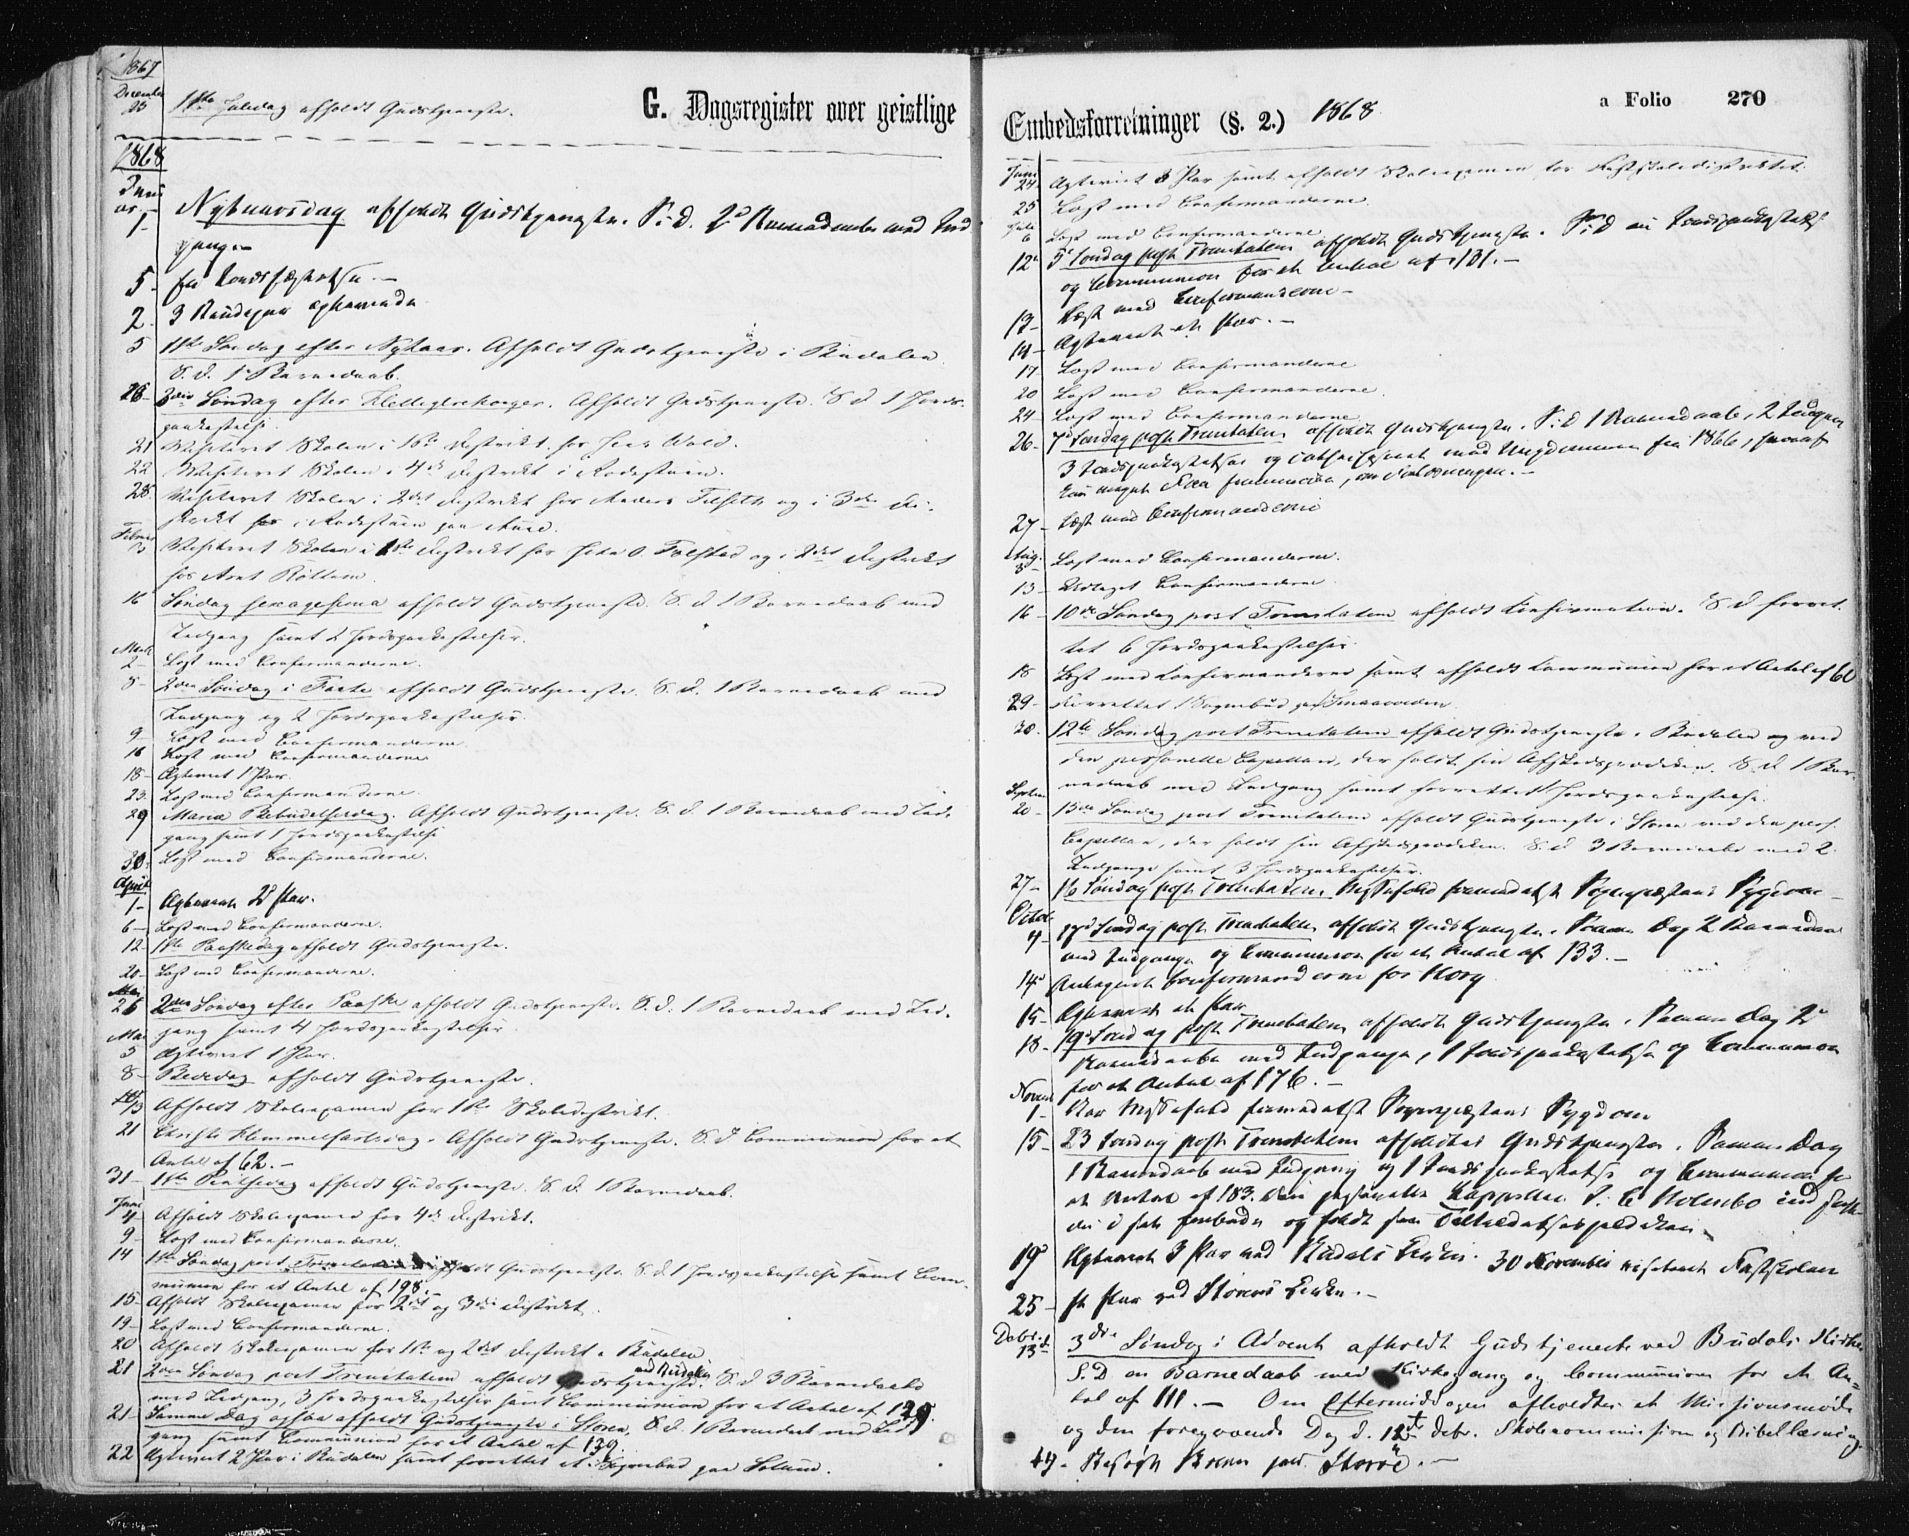 1867
December
25 1ste Juledag afholdt Gudstjeneste.
G. Dagsregister over geistlige
1868
Januar
1 - Nytaarsdag afholdt Gudstjeneste. S. D. 2 Barnedaabe med Ind-
gang
5 -
2 - 3
5 1ste Søndag efter Nytaar. Afholdt Gudstjeneste i Budalen.
S. d. 1 Barnedaab.
26 - 3die Søndag efter Helligtrekonger. Afholdt Gudstjeneste. S d 1 Jords-
paakastelse.
21 Visiteret Skolen i 1ste District hos
22 Visiteret Skolen i 4de District i Rodestuen.
28. Visiteret Skolen i 2det District hos Anders Folseth og i 3die Di-
strict i Rodestuen paa
Februar
Visiteret Skolen i 1ste District hos O. Folstad og i 2det District
hos Arnt Røttum.
16 Søndag sexagesima afholdt Gudstjeneste. S. d. 1 Barnedaab med
Indgang samt 2 Jordspaakastelser.
Marts
2 - Læst med Confirmanderne.
8 - 2den Søndag i Faste afholdt Gudstjeneste. S. d. 1 Barnedaab med
Indgang og 2 Jordspaakastelser.
9 - Læst med Confirmanderne
16 Læst med Confirmanderne
18 - Ægteviet 1 Par.
23. Læst med Confirmanderne.
29 Mariæ Bebudelsesdag. Afholdt Gudstjeneste. S. d. 1 Barnedaab med Ind-
gang samt 1 Jordspaakastelse
30. Læst med Confirmanderne.
April
1 - Ægteviet 2 Par.
6 - Læst med Confirmanderne.
12 - 1ste Paaskedag afholdt Gudstjeneste.
20 - Læst med Confirmanderne.
26 2den Søndag efter Paaske afholdt Gudstjeneste. S. d. 1 Barnedaab med Ind-
gang samt 4 Jordspaakastelser
Mai
5 Ægteviet 1 Par.
8 - Bededag afholdt Gudstjeneste.
13 Afholdt Skoleexamen for 1ste Skoledistrikt.
21 Christi Himmelfartsdag. Afholdt Gudstjeneste. S. d. Communion for et
Antal af 62. -
31 - 1ste Pintsedag afholdt Gudstjeneste. S. d. 1 Barnedaab.
Juni
4 - Afholdt Skoleexamen for 4de District.
9 - Læst med Confirmanderne.
14 1ste Søndag post Trinitatem afholdt Gudstjeneste. S. d. 1 Jordspaakastelse samt Com-
munion for et Antal af 198. -
15 - Afholdt Skoleexamen for 2det og 3die District.
19 - Læst med Confirmanderne.
20 Afholdt Skoleexamen for 1ste og 2det District i Budalen
21 2den Søndag post Trinitatem afholdt Gudstjeneste ved Budalen. S. d. 3 Barnedaabe
med Indgang, 3 Jordspaakastelser samt Communion for et Antal af 129.
21 - Samme Dag ogsaa afholdt Gudstjeneste i Støren. S. d. 1 Barnedaab med Ind-
gang samt Communion for et Antal af 139.
22 Ægteviet 2 Par i Budalen samt forrettet et Sognebud paa
Embedsforretninger (§. 2.) 1868
a Folio 270
Juni
24. Ægteviet 3 Par samt afholdt Skoleexamen for Fastskoledistriktet.
25 Læst med Confirmanderne.
Juli
6 Læst med Confirmanderne.
12 5te Søndag post Trinitatem afholdt Gudstjeneste. S. D en Jordpaakastelse
og Communion for et Antal af 131. -
13 - Læst med Confirmanderne -
14 - Ægteviet et Par. -
17 - Læst med Confirmanderne
20 Læst med Confirmanderne.
24 - Læst med Confirmanderne
26 - 7de Søndag post Trinitatem afholdt Gudstjeneste. S. D 1 Barnedaab, 2 Indgange
3 Jordspaakastelser og Catechiseret med Ungdommen fra 1866, hvoraf
27 - Læst med Confirmanderne
Aug.
Læst med Confirmanderne.
13 - Confirmanderne
16 - 10de Søndag post Trinitatem afholdt Confirmation. S d forret-
tet 6 Jordspaakastelser
18 Læst med Confirmanderne samt afholdt Communion for et Antal af 60
29 - Forrettet 1 Sognebud
30. 12te Søndag post Trinitatem afholdt Gudstjeneste i Budalen og ved
den personelle Capellan, der holdt sin Afskedsprædiken. S. d. 1 Bar-
nedaab med Indgang samt forrettet Jordspaakastelse.
Septem
20 - 15de Søndag post Trinitatem afholdt Gudstjeneste i Støren ved den pers.
Capellan, der holdt sin Afskedsprædiken. S. d 3 Barnedaabe med 2
Indgange samt 3 Jordspaakastelser.
27 - 16 Søndag post Trinitatem Messefald formedelst Sognepræstens Sygdom -
Octob.
4 - 17d Søndag post Trinitatem afholdt Gudstjeneste. Samme Dag 2 Barnedaabe
med Indgange og Communion for et Antal af 133. -
14 Antegnet Confirmanderne for Horg
15 - Ægteviet et Par
18 - 19d Søndag post Trinitatem afholdt Gudstjeneste. Samme Dag 2
Barnedaabe med Indgange, 1 Jordspaakastelse og Communion
for et Antal af 176. -
Novem
1 - Var Messefald formedelst Sognepræstens Sygdom
15 - 23 Søndag post Trinitatem afholdtes Gudstjeneste. Samme Dag
1 Barnedaab med Indgang og 1 Jordspaakastelse og Communion for
et Antal af 183. Den personelle Cappellan P. C Holmbo
i sit Embede og holdt sin Tiltrædelsesprædiken
19 Ægteviet 3 Par ved Budals Kirke. 30 November visiteret Fastskolen
25 - et Par ved Størens Kirke. -
Debr.
13 3die Søndag i Advent afholdt Gudstjeneste ved Budals Kirke
S. D en Barnedaab med Kirkegang og Communion for et An-
tal af 111. - Om Eftermiddagen afholdtes et Missionsmøde
og den foregaaende Dag d. 12te Debr. Skolecommission og Bibellæsning.
Besøgt paa Storøe. -